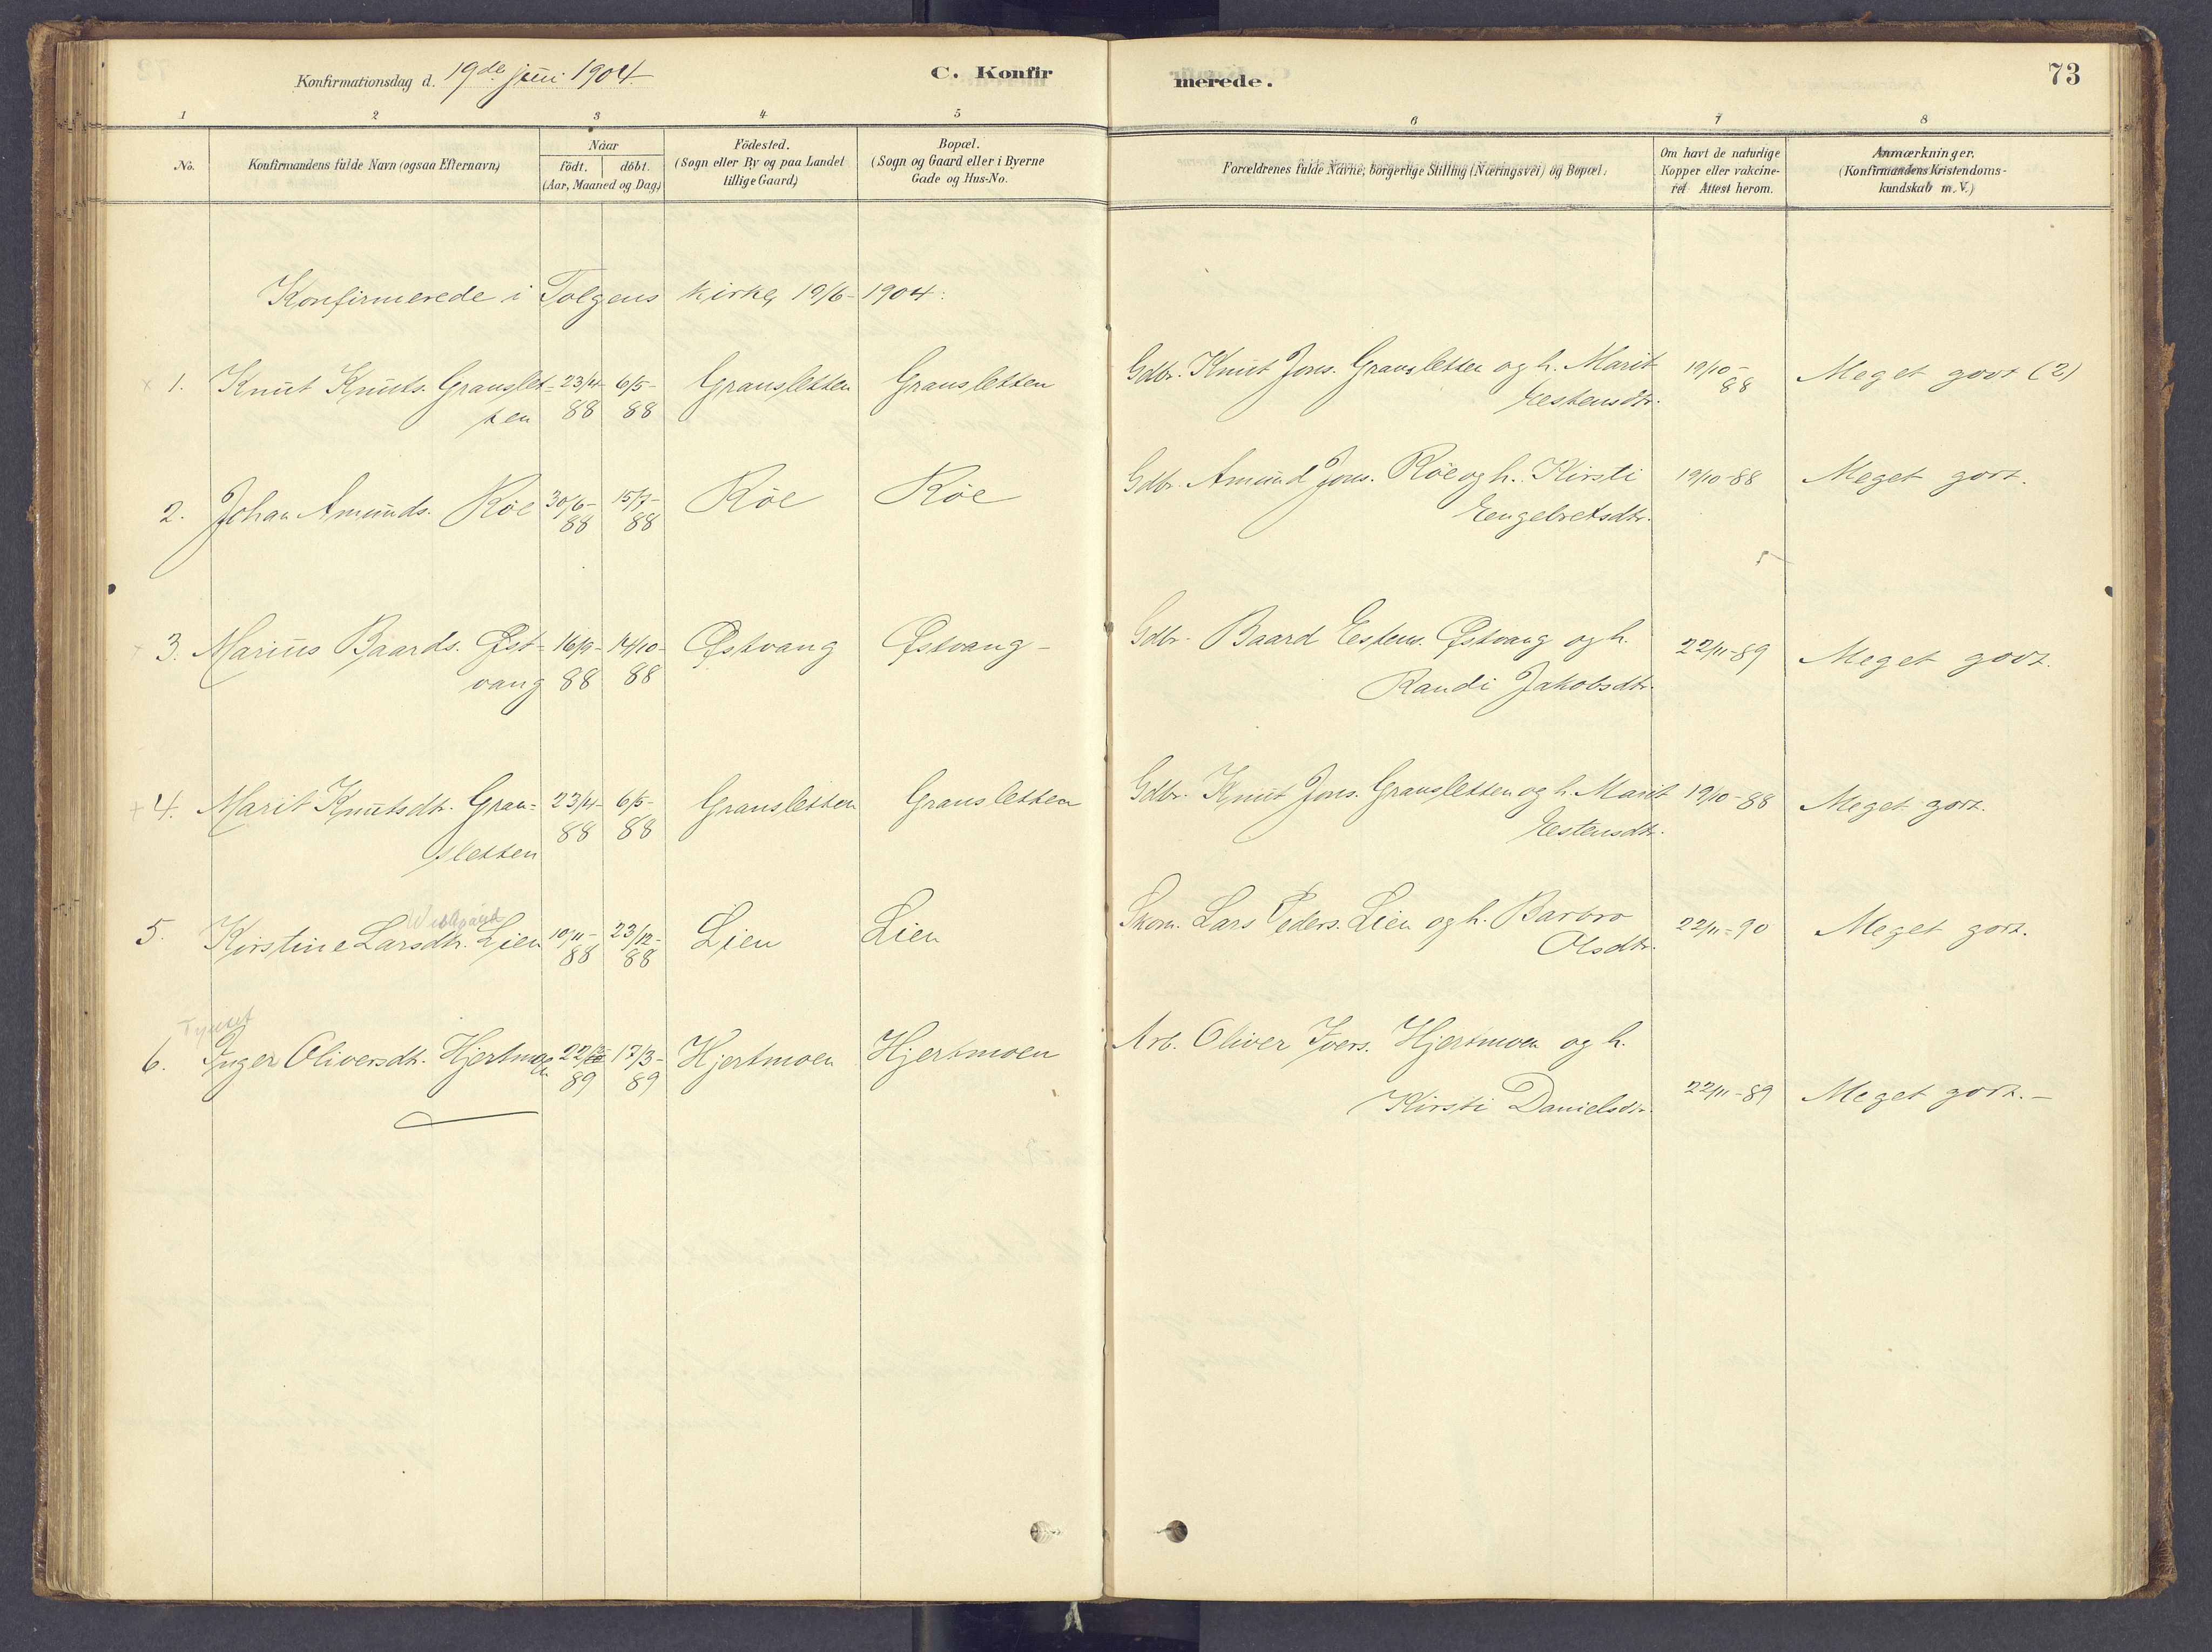 Konfirmationsdag d. 19de juni 1904.
C. Konfir
merede.
73
1 2 3 4 5 6 7 8
No.
Konfirmandens fulde Navn (ogsaa Efternavn)
Naar
födt. döbt.
(Aar, Maaned og Dag)
Födested.
(Sogn eller By og paa Landet
tillige Gaard)
Bopæl.
(Sogn og Gaard eller i Byerne
Gade og Hus-No.
Forældrenes fulde Navne, borgerlige Stilling (Næringsvei) og Bopæl.
Om havt de naturlige
Kopper eller vakcine-
ret Attest herom.
Anmærkninger.
(Konfirmandens Kristendoms-
kundskab m. V.)
Konfirmerede i Tolgens kirke 19/6-1904.
x 1. Knut Knuts. Granslet- 23/4- 6/5- Gransletten Gransletten Gdbr. Knut Jons. Gransletten og h. Marit 19/10- Meget godt (2)
ten 88 88 Eestensdtr. 88
2. Johan Amunds. Röe 30/6- 15/7- Röe Röe Gdbr. Amund Jons. Röe og h. Kirsti 19/10-88 Meget godt.
88 88 Eengebretsdtr.
x 3. Marius Baards. Øst- 16/9- 14/10- Østvang Østvang- Gdbr. Baard Eestens. Østvang og h. 22/11-89 Meget godt.
vang 88 88 Randi Jakobsdtr.
x 4. Marit Knutsdtr. Gran- 23/4- 6/5- Gransletten Gransletten Gdbr. Knut Jons. Gransletten og h. Marit 19/10-88 Meget godt.
sletten 88 88 Eestensdtr.
5. Kirstine Larsdtr. Lien 10/11- 23/12- Lien Lien Skom. Lars Peders. Lien og h. Barbro 22/11-90 Meget godt.
88 88 Olsdtr.
Tynset
6. Inger Oliversdtr. Hjertmoen 22/2- 17/3- Hjertmoen Hjertmoen Arb. Oliver Ivers. Hjertmoen og h.
89 89 Kirsti Danielsdtr. 22/11-89 Meget godt.-